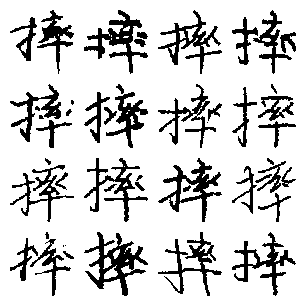 摔摔摔摔
摔摔摔摔
摔摔摔摔
摔摔摔摔